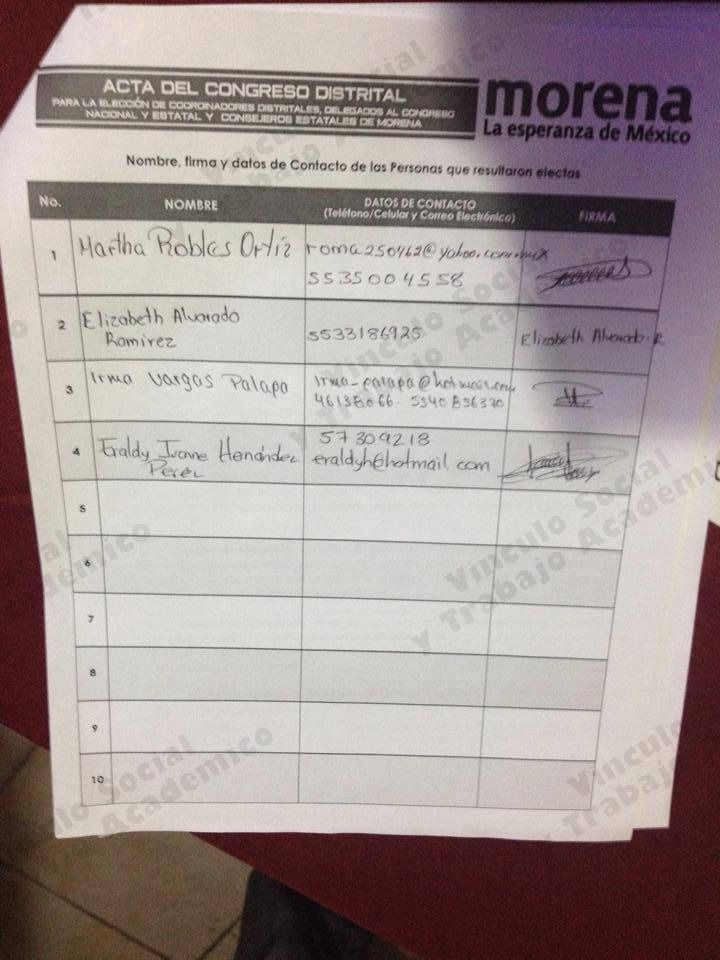 ACTA DEL CONGRESO DISTRITAL
PARA LA ELECCIÓN DE COORDINADORES DISTRITALES, DELEGADOS AL CONGRESO
NACIONAL Y ESTATAL Y CONSEJEROS ESTATALES DE MORENA
morena
La esperanza de México
Nombre, firma y datos de Contacto de las Personas que resultaron electas
No. NOMBRE DATOS DE CONTACTO FIRMA
(Teléfono/Celular y Correo Electrónico)
1 Martha Robles Ortiz roma250462@yahoo.com.mx
5535004558
2 Elizabeth Alvarado Ramirez 5533186925 Elizabeth Alvarado R
3 Irma Vargas Palapa Irma_palapa@hotmail.com
46138066. 5540856370
4 Eraldy Ivone Hernández Perez 57309213
eraldyh@hotmail.com
5
6
7
8
9
10
Vinculo Social
Y Trabajo Académico
Vinculo Social
Y Trabajo Académico